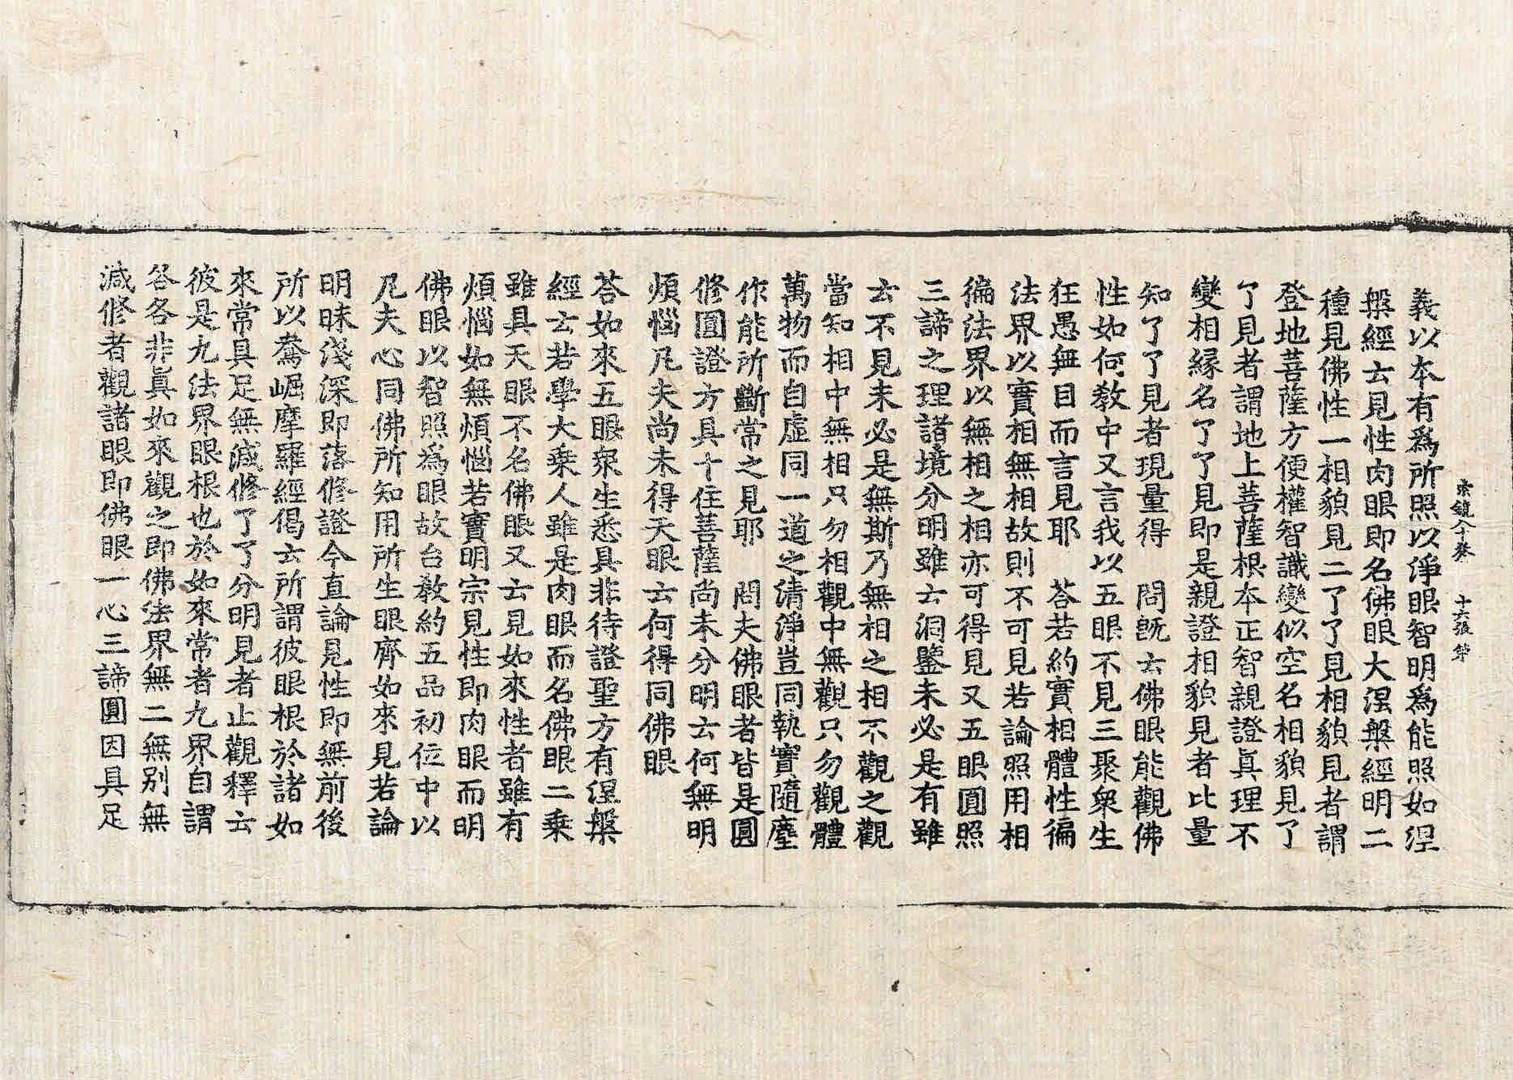 義以本有爲所照以淨眼智明爲能照如涅
槃經云見性肉眼即名佛眼大涅槃經明二
種見佛性一相貌見二了了見相貌見者謂
登地菩薩方便權智識變似空名相貌見了
了見者謂地上菩薩根本正智親證眞理不
變相縁名了了見即是親證相貌見者比量
知了了見者現量得　問旣云佛眼能觀佛
性如何教中又言我以五眼不見三聚衆生
狂愚無目而言見耶　荅若約實相體性徧
法界以實相無相故則不可見若論照用相
徧法界以無相之相亦可得見又五眼圓照
三諦之理諸境分明雖云洞鑒未必是有雖
云不見未必是無斯乃無相之相不觀之觀
當知相中無相只勿相觀中無觀只勿觀體
萬物而自虛同一道之清淨豈同執實隨塵
作能所斷常之見耶　問夫佛眼者皆是圓
修圓證方具十住菩薩尚未分明云何無明
煩惱凡夫尚未得天眼云何得同佛眼
荅如來五眼衆生悉具非待證聖方有涅槃
經云若學大乗人雖是肉眼而名佛眼二乗
雖具天眼不名佛眼又云見如來性者雖有
煩惱如無煩惱若實明宗見性即肉眼而明
佛眼以智照爲眼故台教約五品初位中以
凡夫心同佛所知用所生眼齊如來見若論
明昧淺深即落修證今直論見性即無前後
所以鴦崛摩羅經偈云所謂彼眼根於諸如
來常具足無減修了了分明見者止觀釋云
彼是九法界眼根也於如來常者九界自謂
各各非眞如來觀之即佛法界無二無別無
減修者觀諸眼即佛眼一心三諦圓因具足
十六張